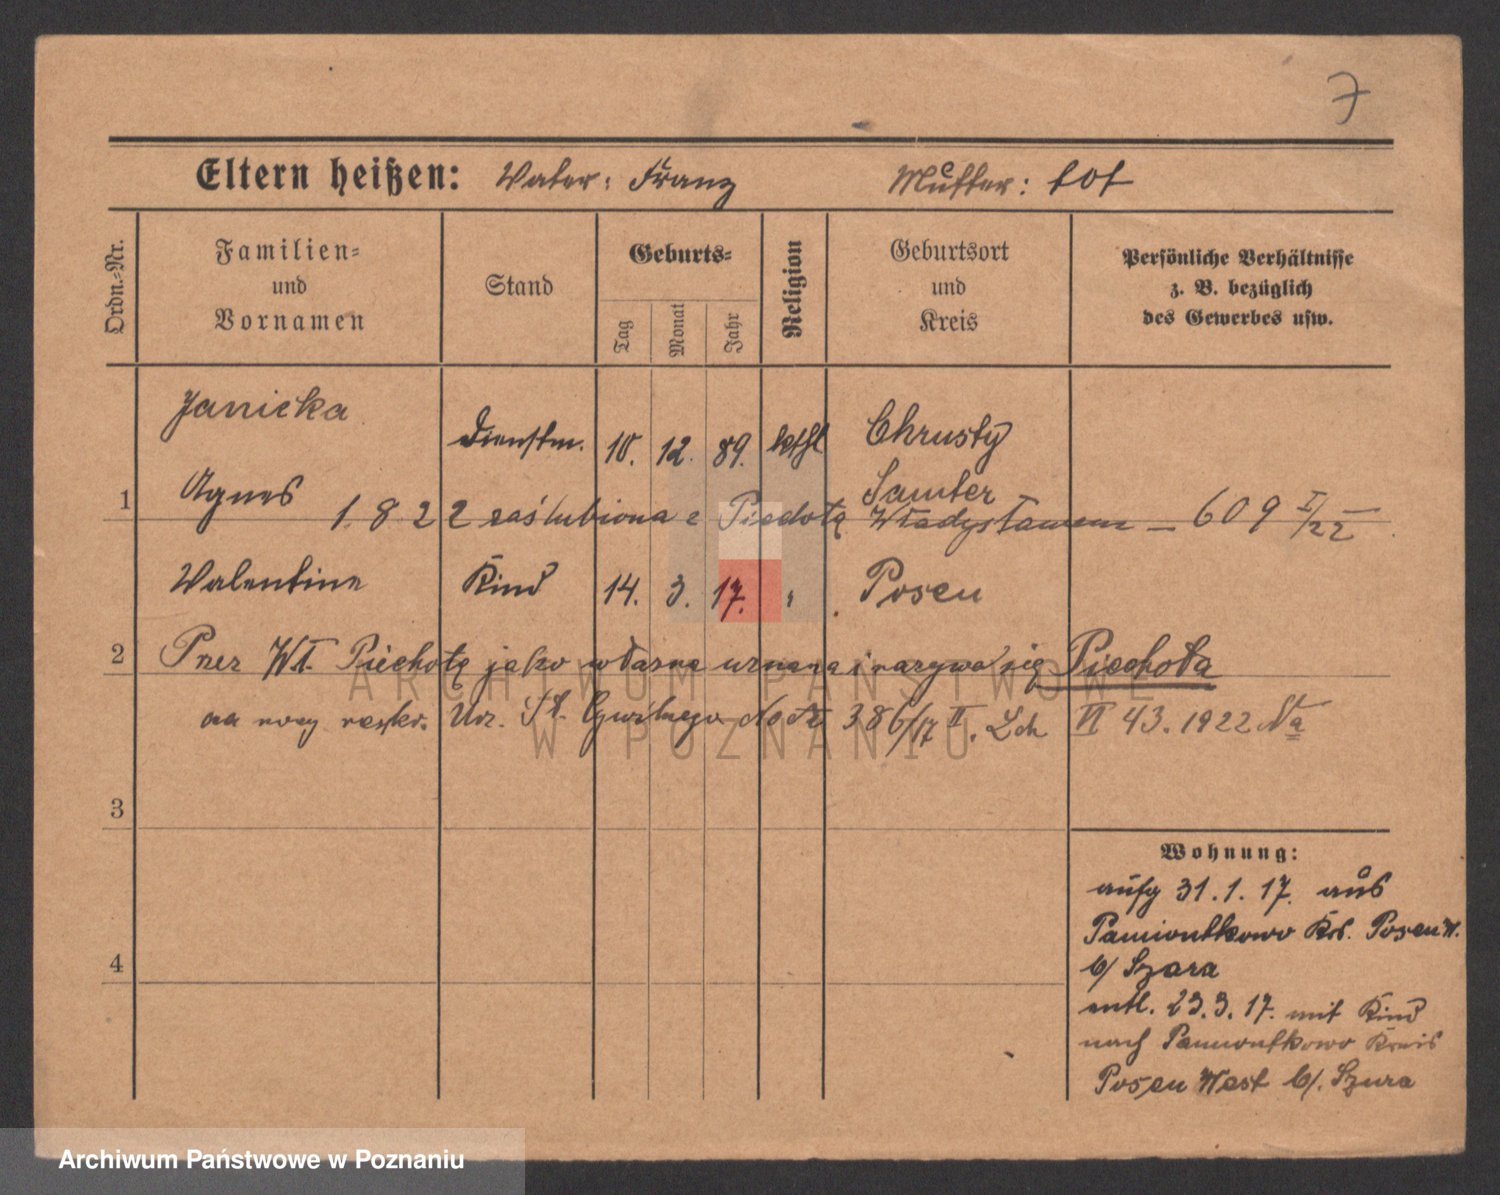 7
Eltern heißen: Vater: Franz Mutter: tot
Ordn.-Nr.
Familien-
und
Vornamen
Stand
Geburts-
Tag
Monat
Jahr
Religion
Geburtsort
und
Kreis
Persönliche Verhältnisse
z. B. bezüglich
des Gewerbes usw.
Janicka
Dienstm. 10. 12. 89. kthl Chrusty
1 Agnes Samter
1 8 2 2 zaślubiona z Piechotą Władysławem — 609 I/22
Valentine Kind 14. 3. 17. " Posen
2 Przez Wł. Piechotę jako własna uznana i nazywa się Piechota
na mocy Urz. St. Cywilnego 386/17 II. VI 43. 1922
3
4
Wohnung:
aufg 31. 1. 17. aus
Pamiontkowo Krs. Posen W.
b/ Szara
entl. 23. 3. 17. mit Kind
nach Pamiontkowo Kreis
Posen West b/. Szura
ARCHIWUM PAŃSTWOWE
W POZNANIU
Archiwum Państwowe w Poznaniu